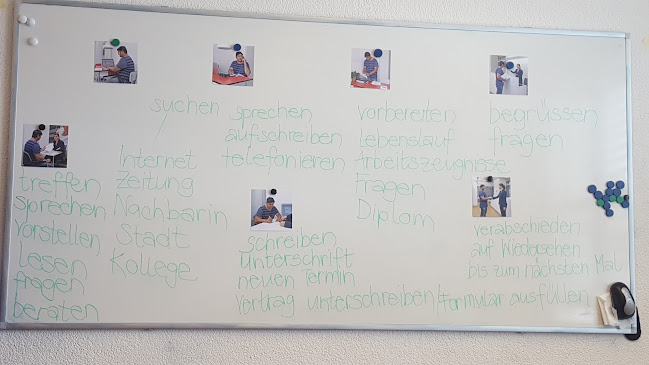 suchen
Internet
Zeitung
Nachbarin
Stadt
Kollege
sprechen
aufschreiben
telefonieren
vorbereiten
Lebenslauf
Arbeitszeugnisse
Fragen
Diplom
begrüssen
fragen
treffen
sprechen
vorstellen
lesen
fragen
beraten
schreiben
unterschrift
neuen Termin
Vertrag unterschreiben/Formular ausfüllen
verabschieden
auf Wiedersehen
bis zum nächsten Mal